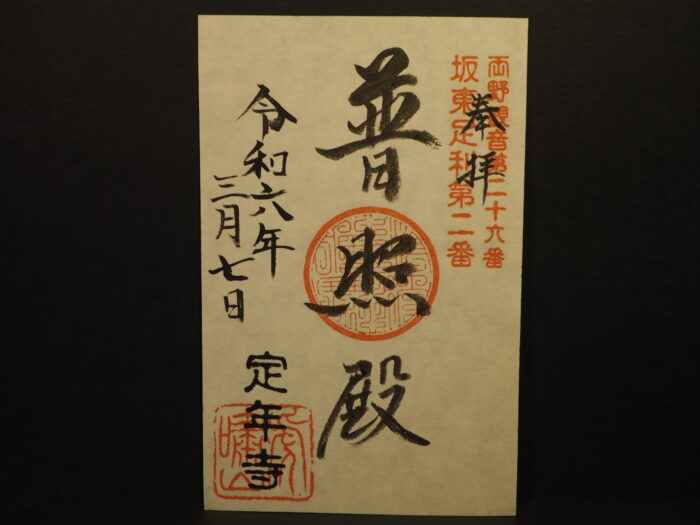 両野観音第二十六番
坂東足利第二番
奉拝
普照殿
令和六年
三月七日
定年寺